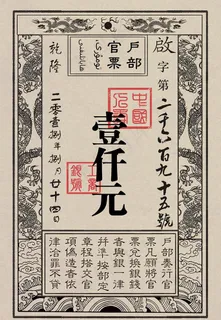 戶部
官票
啟字第二千六百九十五號
壹仟元
乾隆
二零壹捌年捌月廿十四日
中國
戶部奏行官
票凡願將官
票兌換銀錢
者與銀一律
並準按部定
章程搭交官
項僞造者依
律治罪不貸